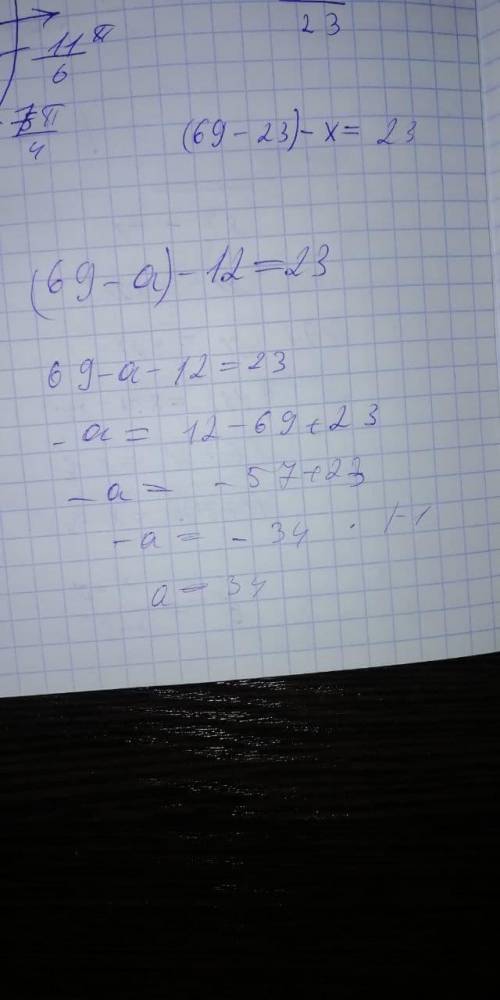 11π/6
23
π/4
(69 - 23) - x = 23
(69 - a) - 12 = 23
69 - a - 12 = 23
- a = 12 - 69 + 23
- a = - 57 + 23
- a = - 34 · |-1
a = 34